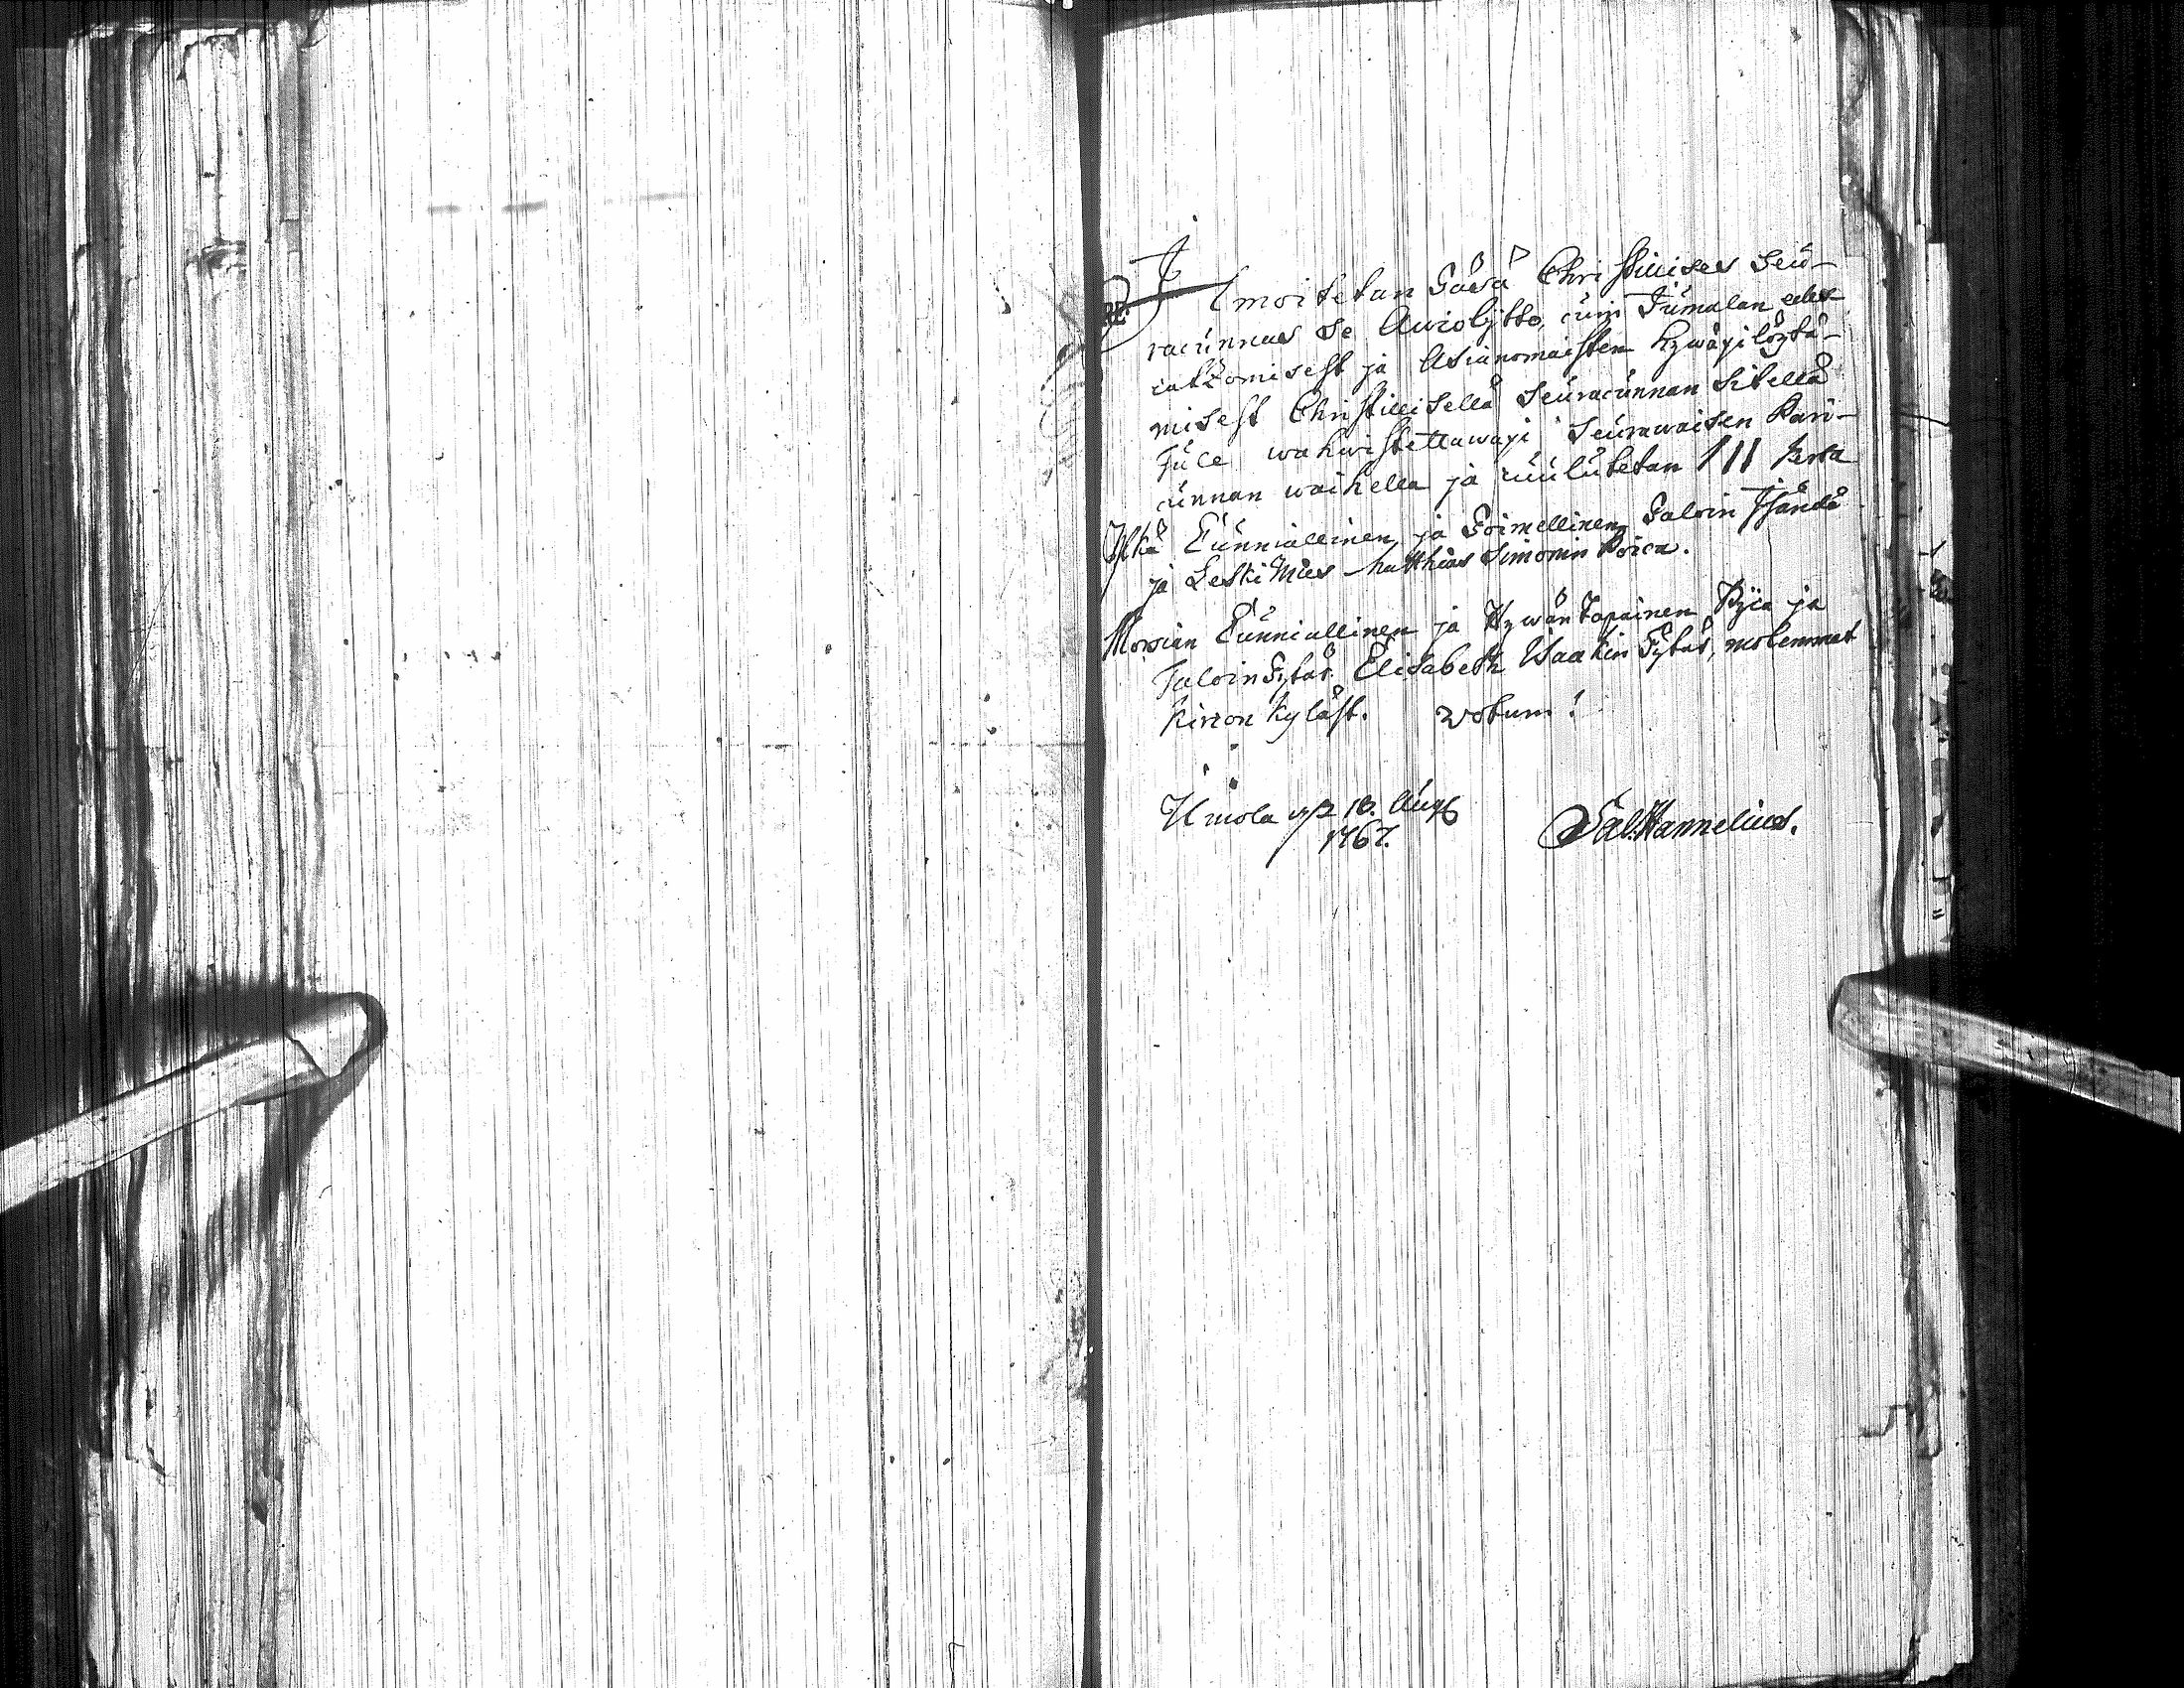 Ilmoitetan Täsä Christillises Seu-
racunnas se Awioljitto, cuin Jumalan edes
catzomisest ja Asianomaisten hywäxilöytä-
misest Christillisellä Seuracunnan Sitellä
Tule wahwistettawaxi seurawaisen Pari-
cunnan waihella ja cuulutetan III kerta
Yljkä Cunniallinen ja Toimellinen Taloin Isändä
ja Leski Mies Matthias Simonin Poica.
Morsian Cunniallinen ja Hywän Tapainen Pjca ja
Taloin Tytär Elisabeth Isaakin Tytär, molemmat
Kirron Kyläst. Votum!
Ulmola 18. Aug
1767.
Sal. Hannelius.